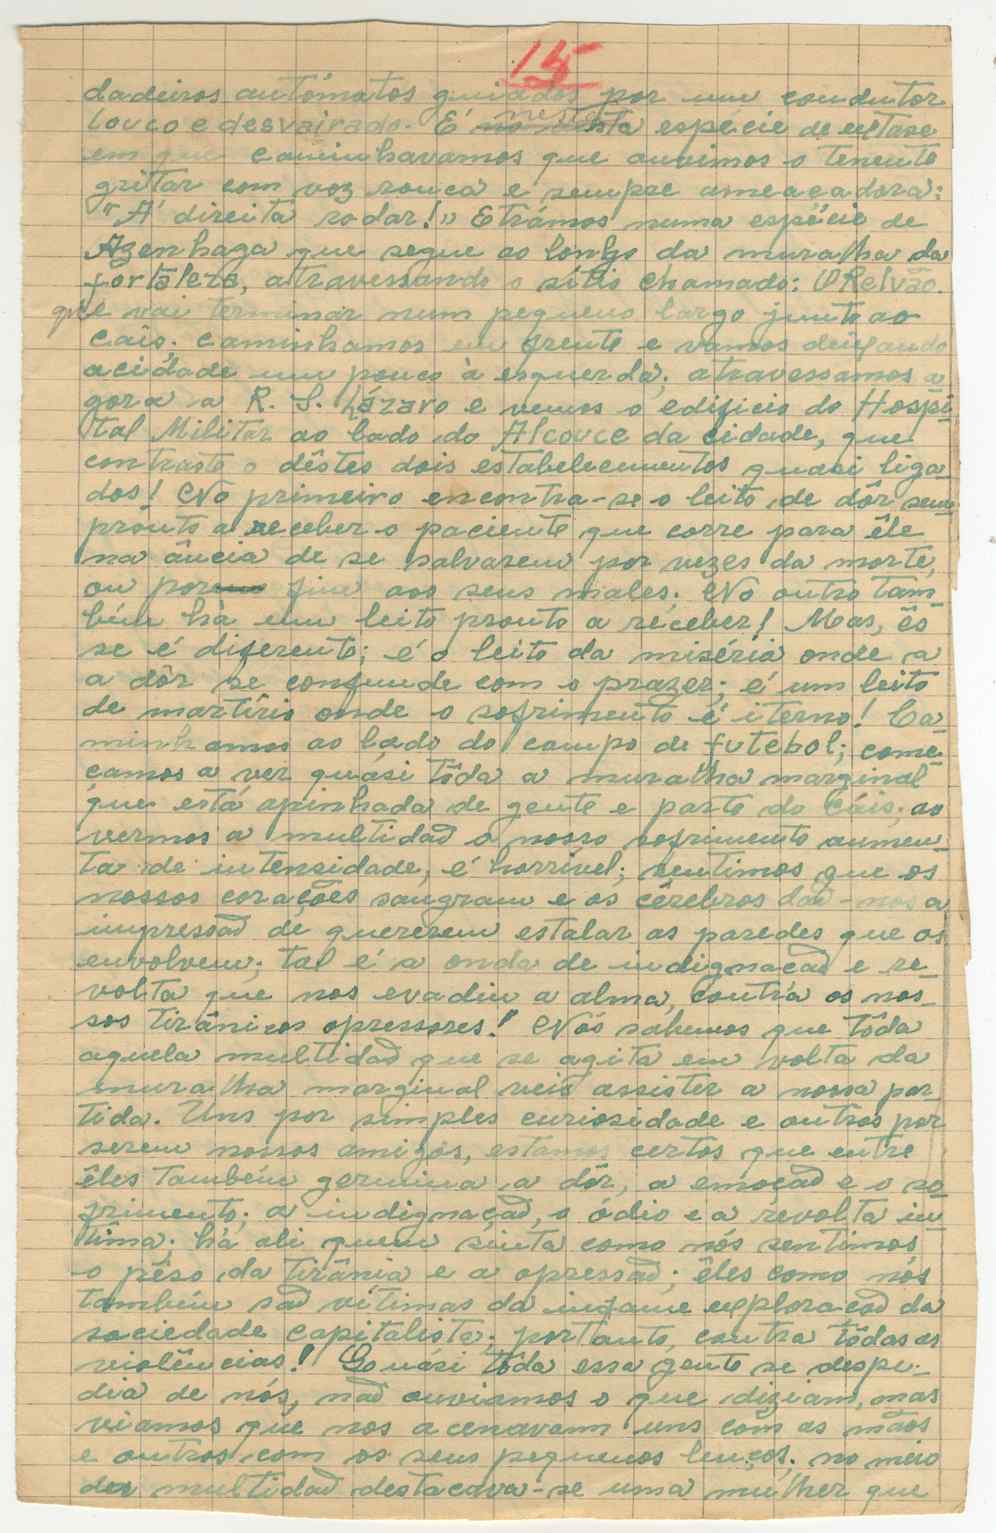 15
dadeiros autómatos guiados por um condutor
louco e desvairado. É nesta espécie de extase
em que caminhavamos que ouvimos o tenente
gritar com voz rouca e sempre ameaçadora:
"Á direita rodar!" Etrámos numa espécie de
Azenhaga que segue ao longo da muralha da
fortaleza, atravessando o sitio chamado: O Relvão.
que vai terminar num pequeno largo junto ao
Cais. Caminhamos em frente e vamos deixando
a cidade um pouco à esquerda; atravessamos a
gora a R. S. Lázaro e vemos o edificio do Hospi-
tal Militar ao lado do Alcouce da cidade, que
contraste o dêstes dois estabelecimentos quasi liga-
dos! No primeiro encontra-se o leito de dôr sem
pronto a receber o paciente que corre para êle
na ância de se salvarem por vezes da morte,
ou por fim aos seus males. No outro tam-
bém há um leito pronto a receber! Mas, ês-
se é diferente; é o leito da miséria onde a
a dôr se confunde com o prazer; é um leito
de martírio onde o sofrimento é iterno! Ca-
minhamos ao lado do campo de futebol; come-
çamos a ver quási tôda a muralha marginal
que está apinhada de gente e parte do Cáis, ao
vermos a multidão o nosso sofrimento aumen-
ta de intensidade, é horrivel; sentimos que os
nossos corações sangram e os cêrebros dão-nos a
impressão de quererem estalar as paredes que os
envolvem; tal é a onda de indignação e re-
volta que nos evadiu a alma, contra os nos-
sos tirânicos opressores! Nós sabemos que tôda
aquela multidão que se agita em volta da
muralha marginal veio assister a nossa par-
tida. Uns por simples curiosidade e outros por
serem nossos amigos, estamos certos que entre
êles também germina a dôr, a emoção e o so-
frimento; a indignação, o ódio e a revolta in-
tima; há ali quem sinta como nós sentimos
o pêso da tirânia e a opressão; êles como nós
também são vítimas da infame exploração da
sociedade capitalista; portanto, contra tôdas as
violências! Quási tôda essa gente se despe-
dia de nós, não ouviamos o que diziam, mas
viamos que nos acenavam uns com as mãos
e outros com os seus pequenos lenços. no meio
da multidão destacava-se uma mulher que